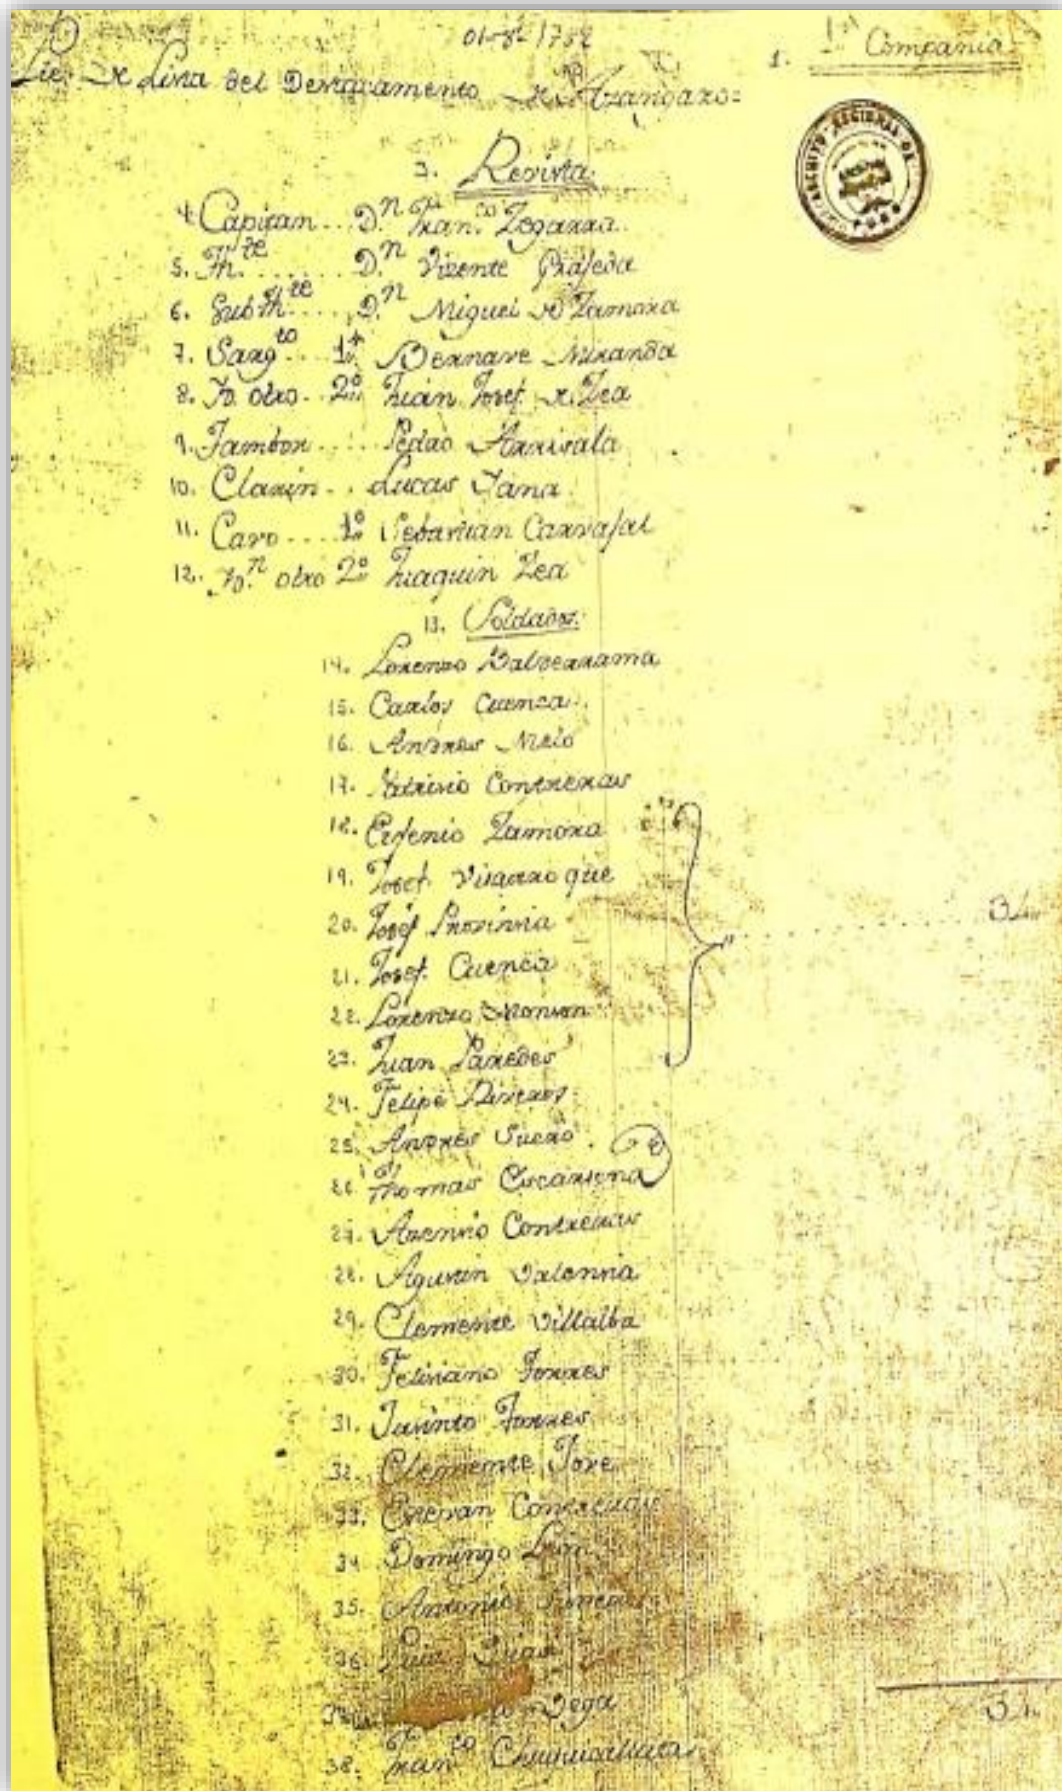 01-8-1782
1. 1ª Compania
Pie de Lista del Destacamento de Azangaro=
ARCHIVO REGIONAL DE PUNO
3. Revista
4. Capitan... D.n Fran.co Zegarra
5. Th.te ...... D.n Vizente
6. Subth.te .... D.n Miguel de Zamora
7. Sarg.to .. 1º Bernave Miranda
8. Yd. otro. 2º Juan Josef de Zea
9. Tambor ..... Pedro Arrisala
10. Clarin . . Lucas Tana
11. Cavo .... 1º Sebastian Carvajal
12. Yd.n otro 2º Juaquin Zea
13. Soldados:
14. Lorenzo Balderrama
15. Carlos Cuenca
16. Andres Melo
17. Patricio Contreras
18. Eugenio Zamora
19. Josef Visarroque
20. Josef Provincia
21. Josef Cuenca
22. Lorenzo Monson
23. Juan Paredes
24. Felipe
25. Andres Suero
26. Thomas Escarsena
27. Arencio Contreras
28. Agustin Valencia
29. Clemente Villalba
30. Feliciano Torres
31. Jacinto Torres
32. Clemente Jove
33. Estevan Contreras
34. Domingo Leon
35. Antonio
36. Luis
37. Vega
38. Fran.co